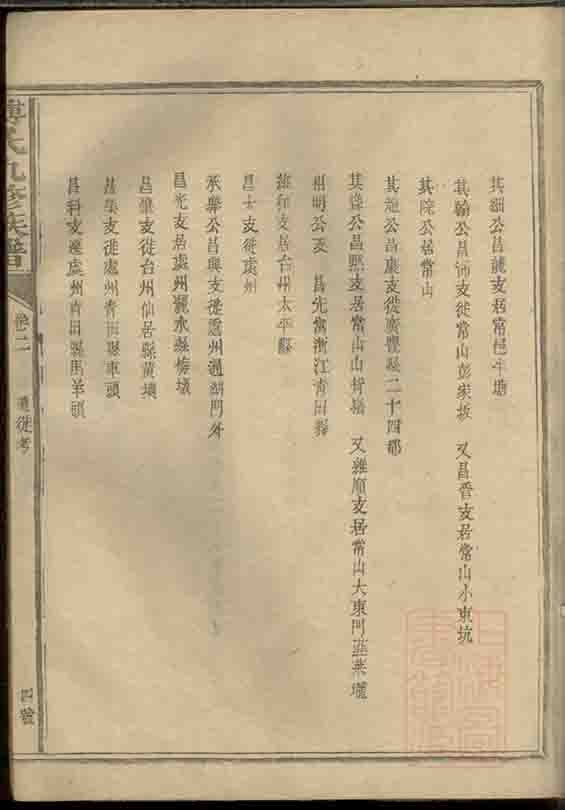 其細公昌龍支居常邑牛塘
其翰公昌沛支徙常山彭家坂 又昌晉支居常山小東坑
其院公居常山
其池公昌慶支徙廣豐縣二十四都
其條公昌熙支居常山山背嶺 又雍順支居常山大東門蓝菜壠
相明公支 昌先當浙江青田縣
雄和支居台州太平縣
昌士支徙處州
承聯公昌興支徙處州通湖門外
昌光支居處州麗水縣梅墩
昌麒支徙台州仙居縣黃壤
昌集支徙處州青田縣車頭
昌科支遷處州青田縣馬羊頭
氏九修族譜
卷二
遷徙考
四號